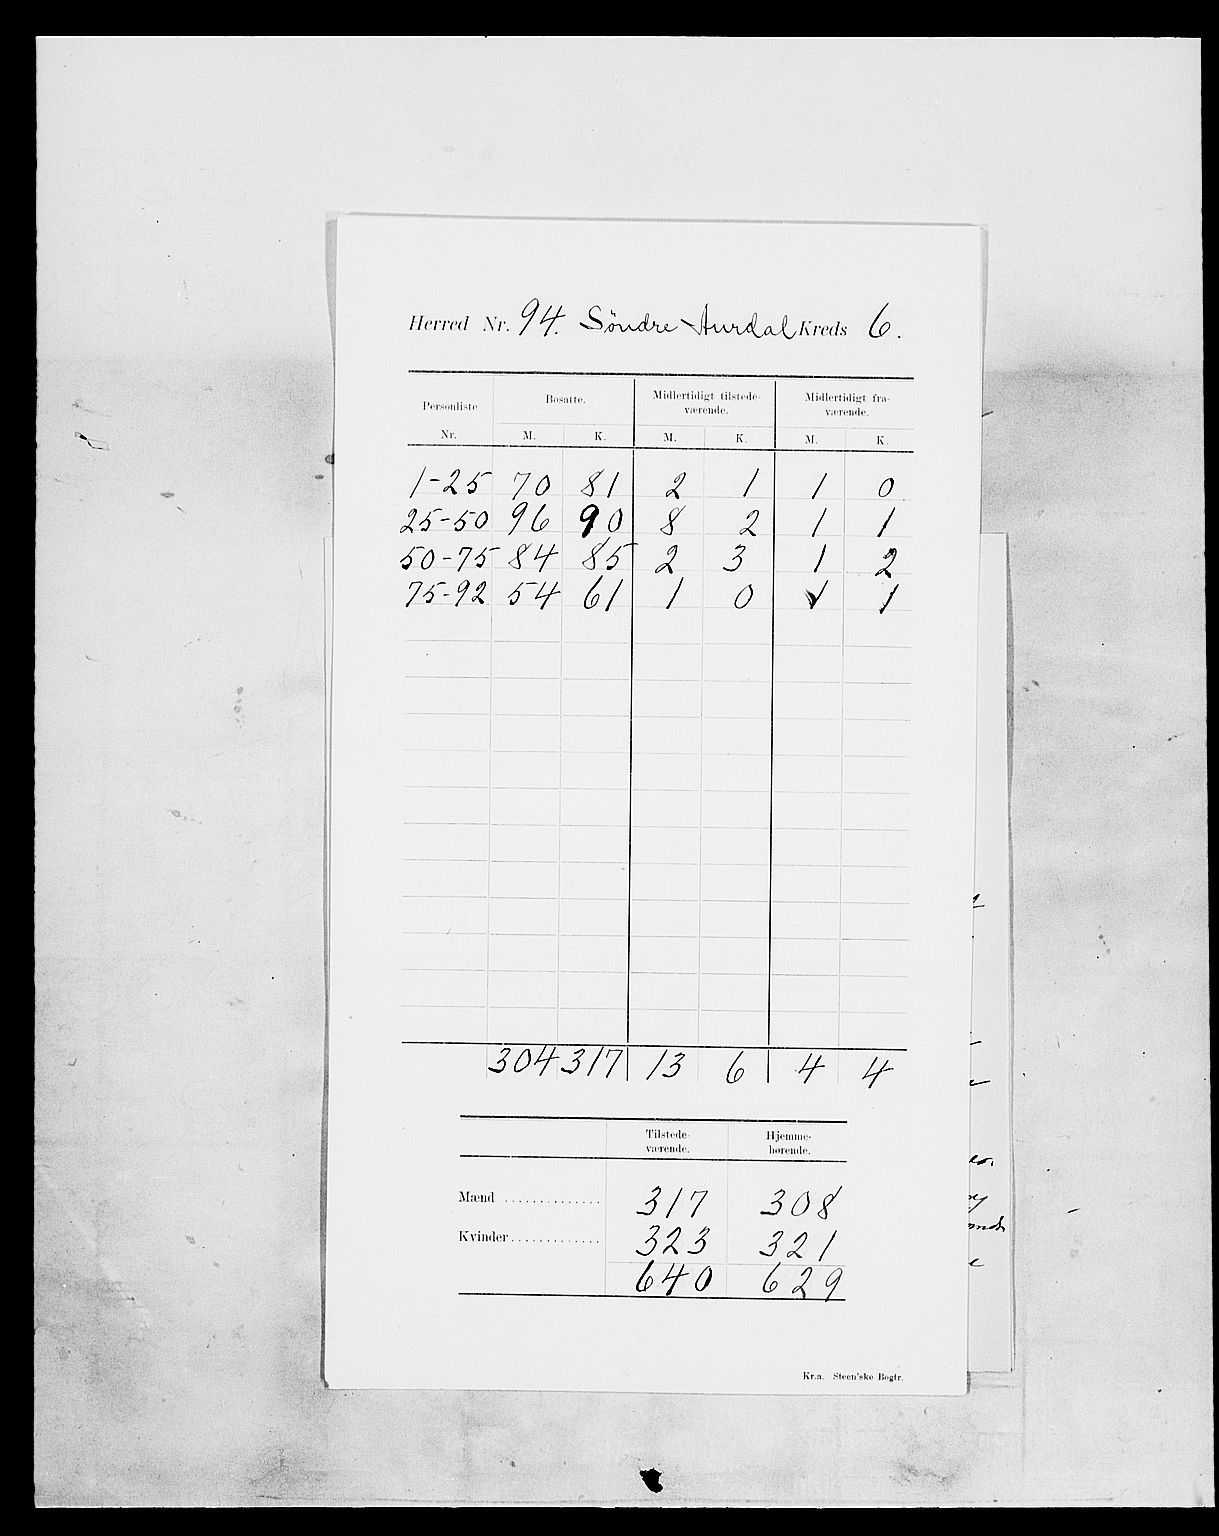 Herred Nr. 94. Söndre Aurdal Kreds 6.
Personliste Nr. Bosatte. Midlertidigt tilstede-værende. Midlertidigt fra-værende.
M. K. M. K. M. K.
1-25 70 81 2 1 1 0
25-50 96 90 8 2 1 1
50-75 84 85 2 3 1 2
75-92 54 61 1 0 1 1
304 317 13 6 4 4
Tilstede-værende. Hjemme-hørende.
Mænd .............. 317 308
Kvinder............. 323 321
640 629
Kr.a. Steen'ske Bogtr.